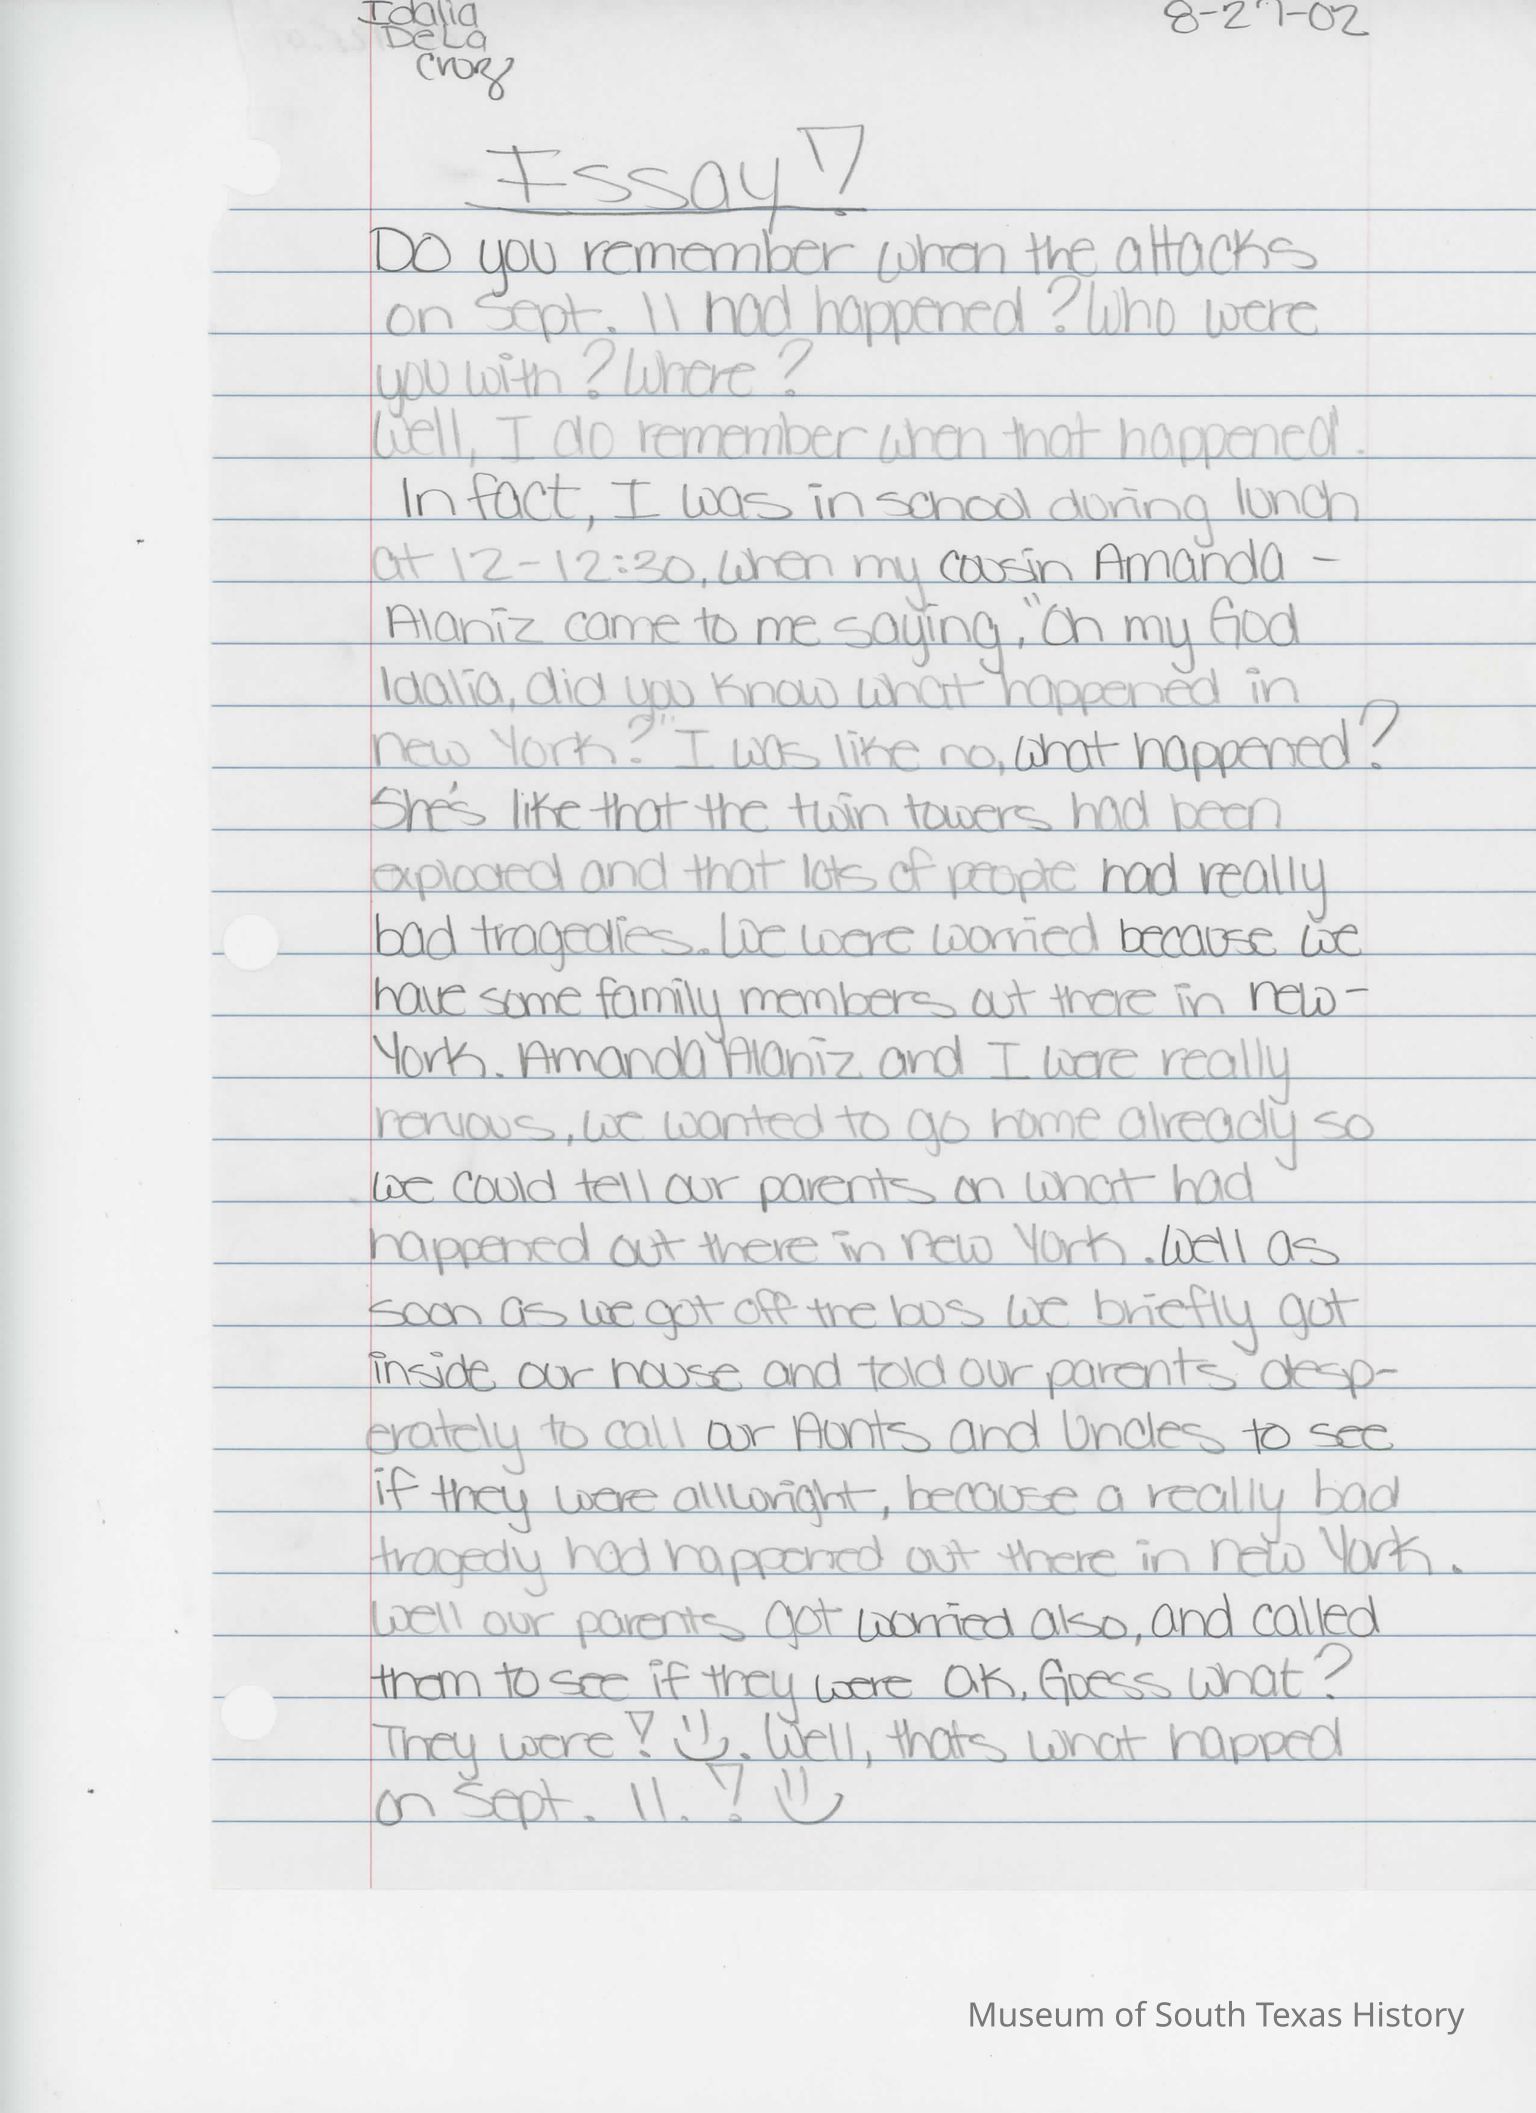 Idalia
De La
Cruz
8-27-02
Essay!
Do you remember when the attacks
on Sept. 11 had happened? Who were
you with? Where?
Well, I do remember when that happened.
In fact, I was in school during lunch
at 12-12:30, when my cousin Amanda -
Alaniz came to me saying, "Oh my God
Idalia, did you know what happened in
new York?" I was like no, what happened?
She's like that the twin towers had been
exploded and that lots of people had really
bad tragedies. We were worried because we
have some family members out there in new-
York. Amanda Alaniz and I were really
nervous, we wanted to go home already so
we could tell our parents on what had
happened out there in new York. Well as
soon as we got off the bus we briefly got
inside our house and told our parents desp-
erately to call our Aunts and Uncles to see
if they were allwright, because a really bad
tragedy had happened out there in new York.
Well our parents got worried also, and called
them to see if they were OK. Guess what?
They were! :). Well, thats what happed
on Sept. 11. ! :)
Museum of South Texas History